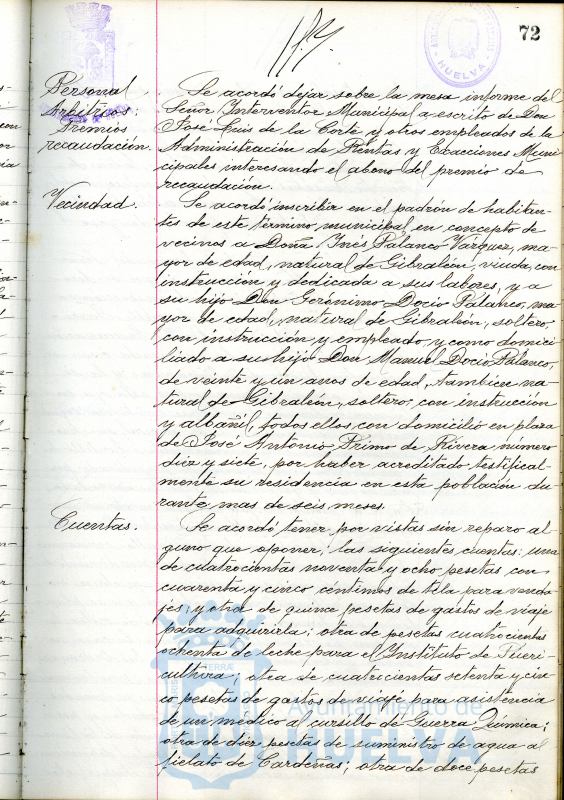 72
HUELVA
Personal
Arbitrios:
Premios
recaudación.
Se acordó dejar sobre la mesa informe del
Señor Interventor Municipal a escrito de Don
José Luis de la Corte y otros empleados de la
Administración de Rentas y Exacciones Muni
cipales interesando el abono del premio de
recaudación.
Vecindad.
Se acordó inscribir en el padrón de habitan-
tes de este término municipal en concepto de
vecinos a Doña Inés Palanco Vázquez, ma-
yor de edad, natural de Gibraleón, viuda, con
instrucción y dedicada a sus labores, y a
su hijo Don Gerónimo Docio Palanco, ma-
yor de edad, natural de Gibraleón, soltero,
con instrucción y empleado, y como domici-
liado a su hijo Don Manuel Docio Palanco,
de veinte y un anos de edad, tambien na-
tural de Gibraleón, soltero, con instrucción
y albañil, todos ellos, con domicilio en plaza
de José Antonio Primo de Rivera número
diez y siete, por haber acreditado testifical-
mente su residencia en esta población du-
rante mas de seis meses.
Cuentas.
Se acordó tener por vistas sin reparo al-
guno que oponer, las siguientes cuentas: una
de cuatrocientas noventa y ocho pesetas con
cuarenta y cinco céntimos de tela para venda-
jes; y otra de quince pesetas de gastos de viaje
para adquirirla; otra de pesetas cuatrocientas
ochenta de leche para el Instituto de Pueri-
cultura; otra de cuatrocientas setenta y cin-
co pesetas de gastos de viaje para asistencia
de un médico al cursillo de Guerra Química;
otra de diez pesetas de suministro de agua al
fielato de Cardeñas; otra de doce pesetas
Ayuntamiento de
HUELVA